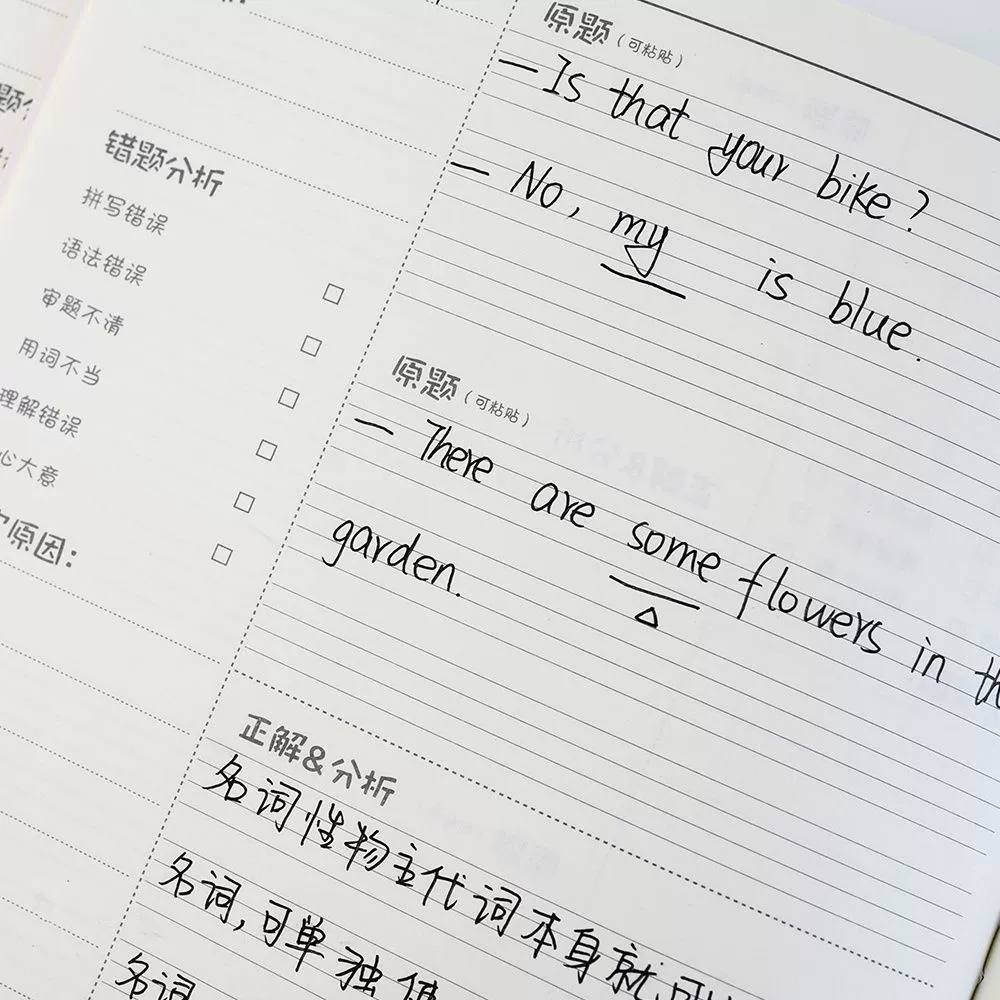 错题分析
拼写错误
语法错误
审题不清
用词不当
理解错误
心大意
原因:
原题(可粘贴)
— Is that your bike?
— No, my is blue.
原题(可粘贴)
— There are some flowers in th
garden.
正解&分析
名词性物主代词本身就可
名词,可单独使
名词